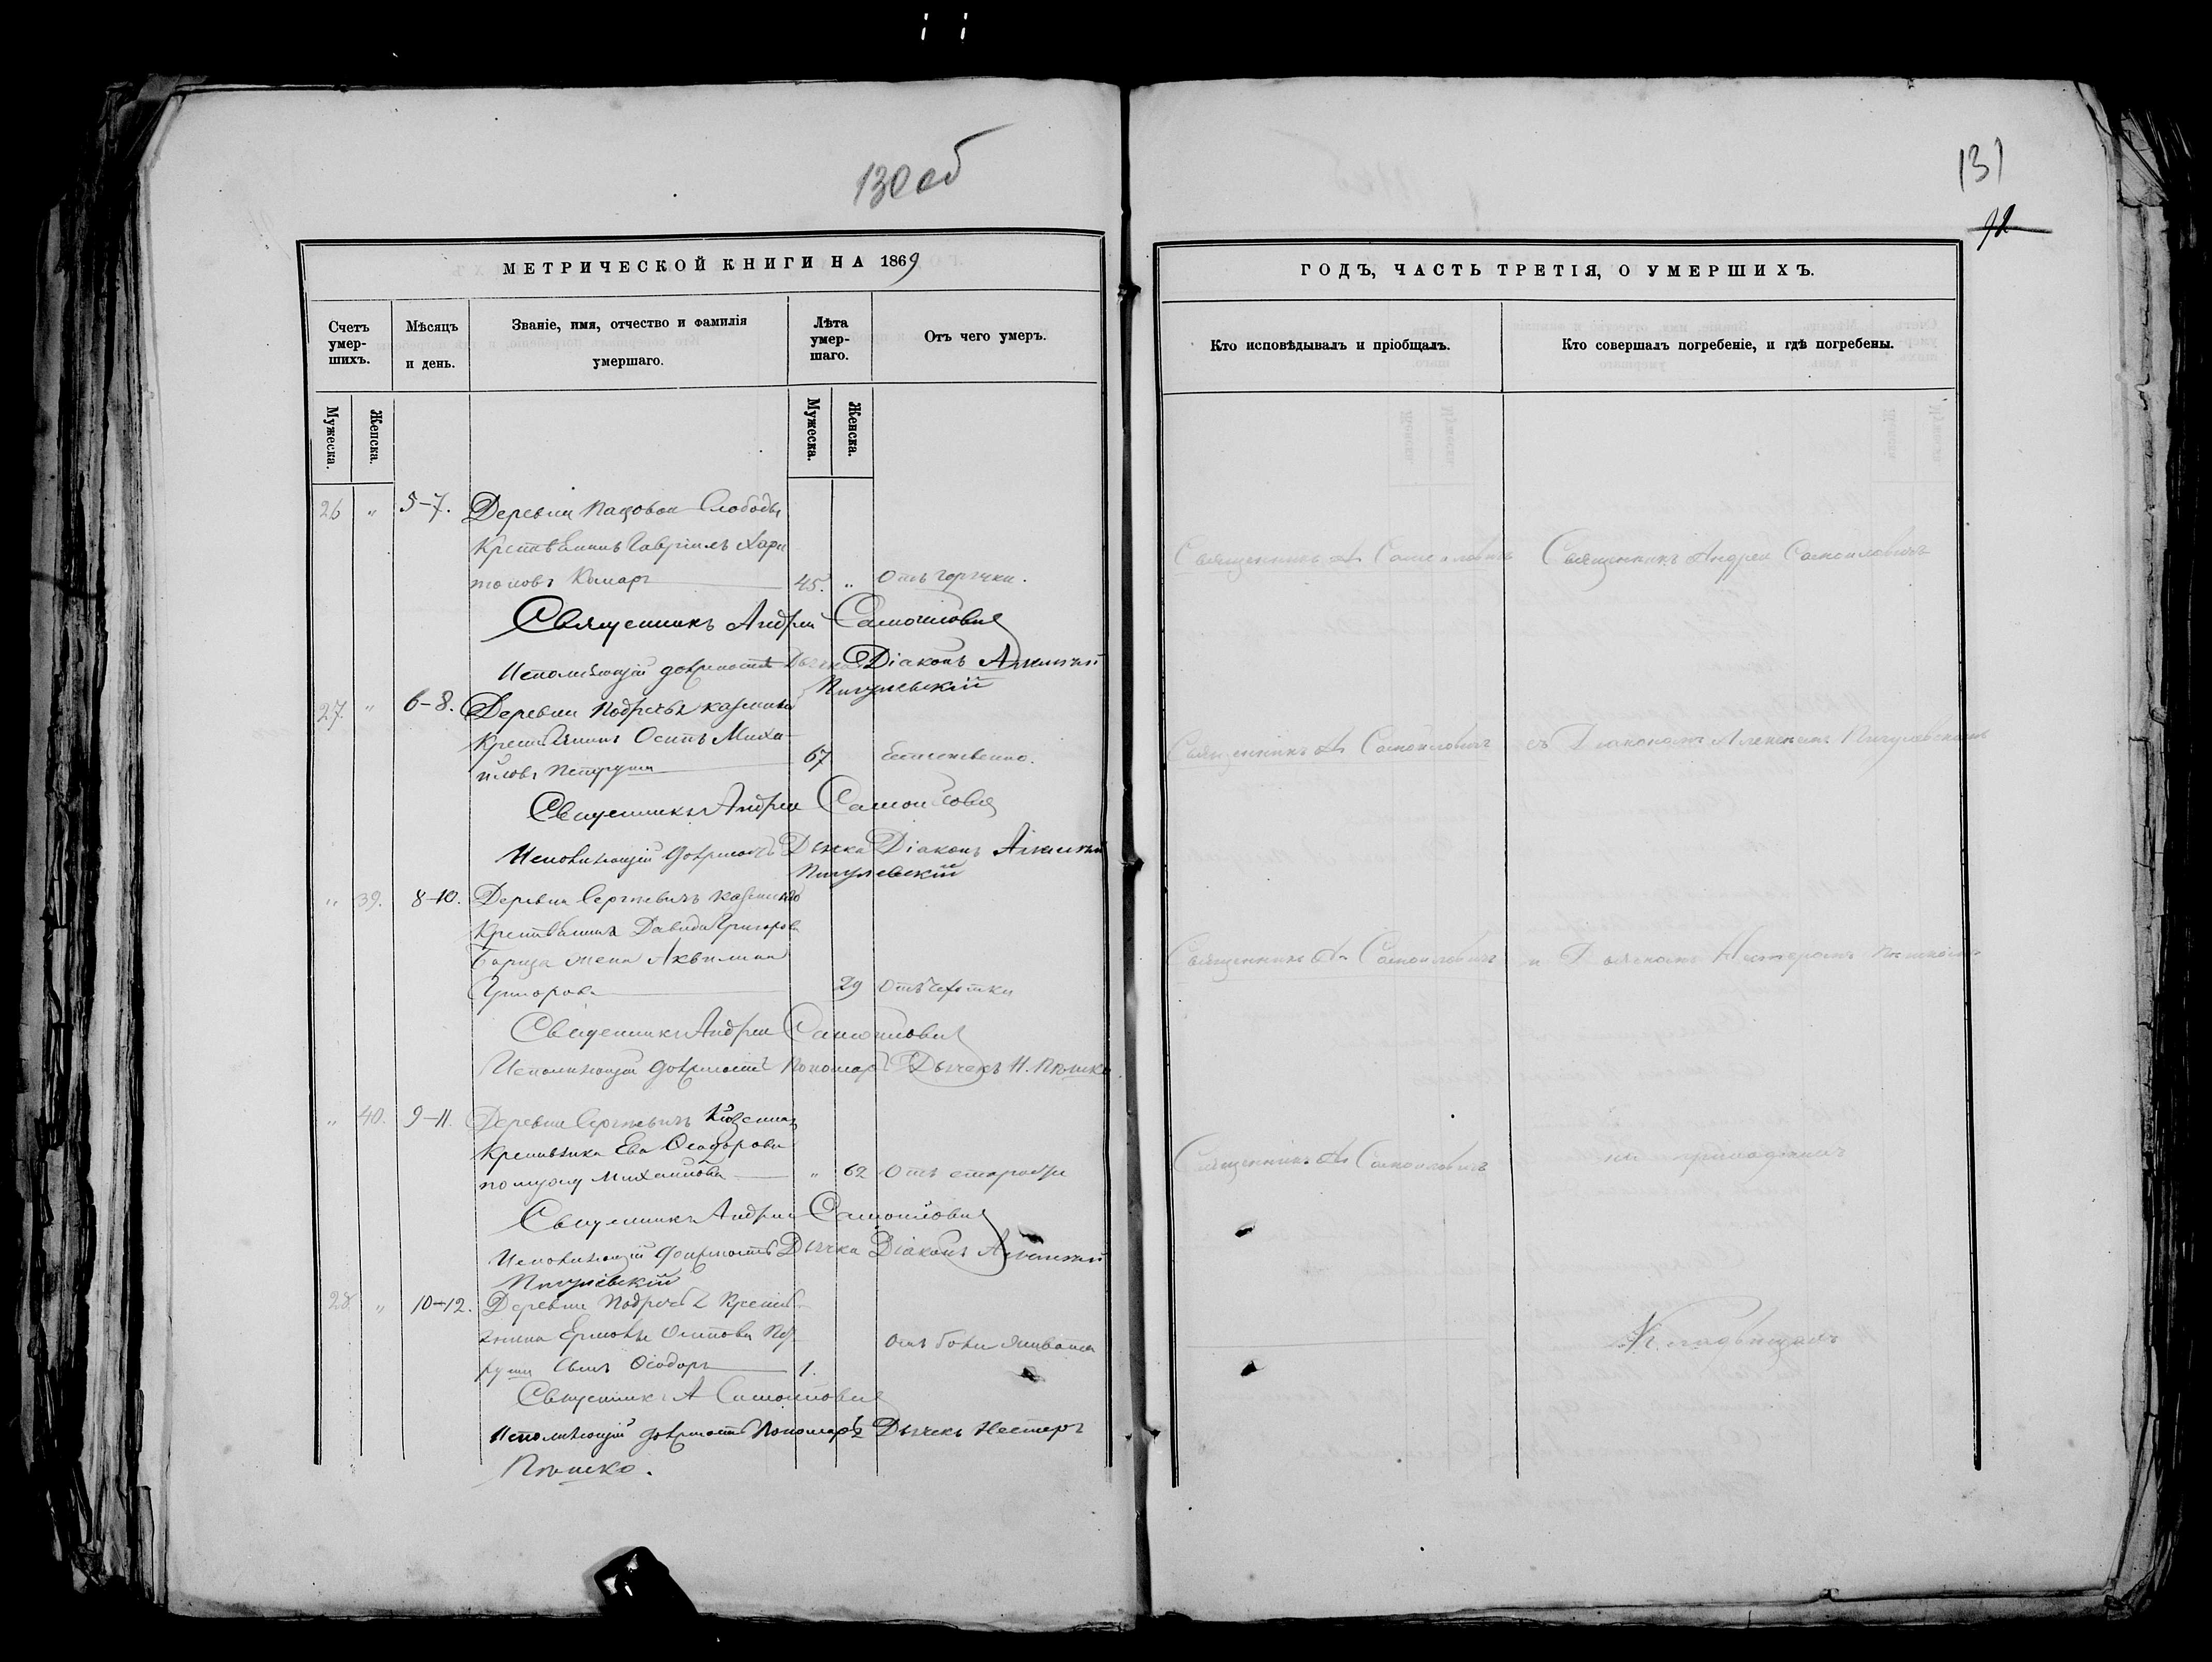 130 об
131
92
МЕТРИЧЕСКОЙ КНИГИ НА 1869
ГОДЪ, ЧАСТЬ ТРЕТІЯ, О УМЕРШИХЪ.
Счетъ умер-шихъ.
Мѣсяцъ и день.
Званіе, имя, отчество и фамилія умершаго.
Лѣта умер-шаго.
Отъ чего умеръ.
Кто исповѣдывалъ и пріобщалъ.
Кто совершалъ погребеніе, и гдѣ погребены.
Мужеска.
Женска.
Мужеска.
Женска.
26 " 5-7. Деревни Слободы
Крестьянинъ Гавріилъ Хари
тоновъ Комаръ 45. " Отъ горячки.
Священникъ А Самойловичъ
Священникъ Андрей Самойловичъ
Священникъ Андрей Самойловичъ
Исполняющій должность Дьячка Діаконъ Алексѣй
Пигулевскій
27. " 6-8. Деревни Подречья
Крестьянинъ Осипъ Миха-
иловъ 67 Естественно.
Священникъ А Самойловичъ
съ Діакономъ Алексѣемъ Пигулевскимъ
Священникъ Андрей Самойловичъ
Исполняющій должность Дьячка Діаконъ Алексѣй
Пигулевскій
" 39. 8-10. Деревни Сергѣевичъ
Крестьянина Давида Григорова
жена Акилина
Григорова 29 Отъ чахотки
Священникъ А Самойловичъ
и Дьячкомъ Нестеромъ
Священникъ Андрей Самойловичъ
Исполняющій должность Пономаря Дьячекъ Н. Пѣшко
" 40. 9-11. Деревни Сергѣевичъ
Крестьянка Ева Ѳеодорова
по мужу Михайлова " 62 Отъ старости
Священникъ А Самойловичъ
на кладбищахъ
Священникъ Андрей Самойловичъ
Исполняющій должность Дьячка Діаконъ Алексѣй
Пигулевскій
28. " 10-12. Деревни Подречья Крестья-
нина Осипова
сынъ Ѳеодоръ 1. Отъ боли живота
кладбищахъ
Священникъ А Самойловичъ
Исполняющій должность Пономаря Дьячекъ Нестеръ
Пѣшко.